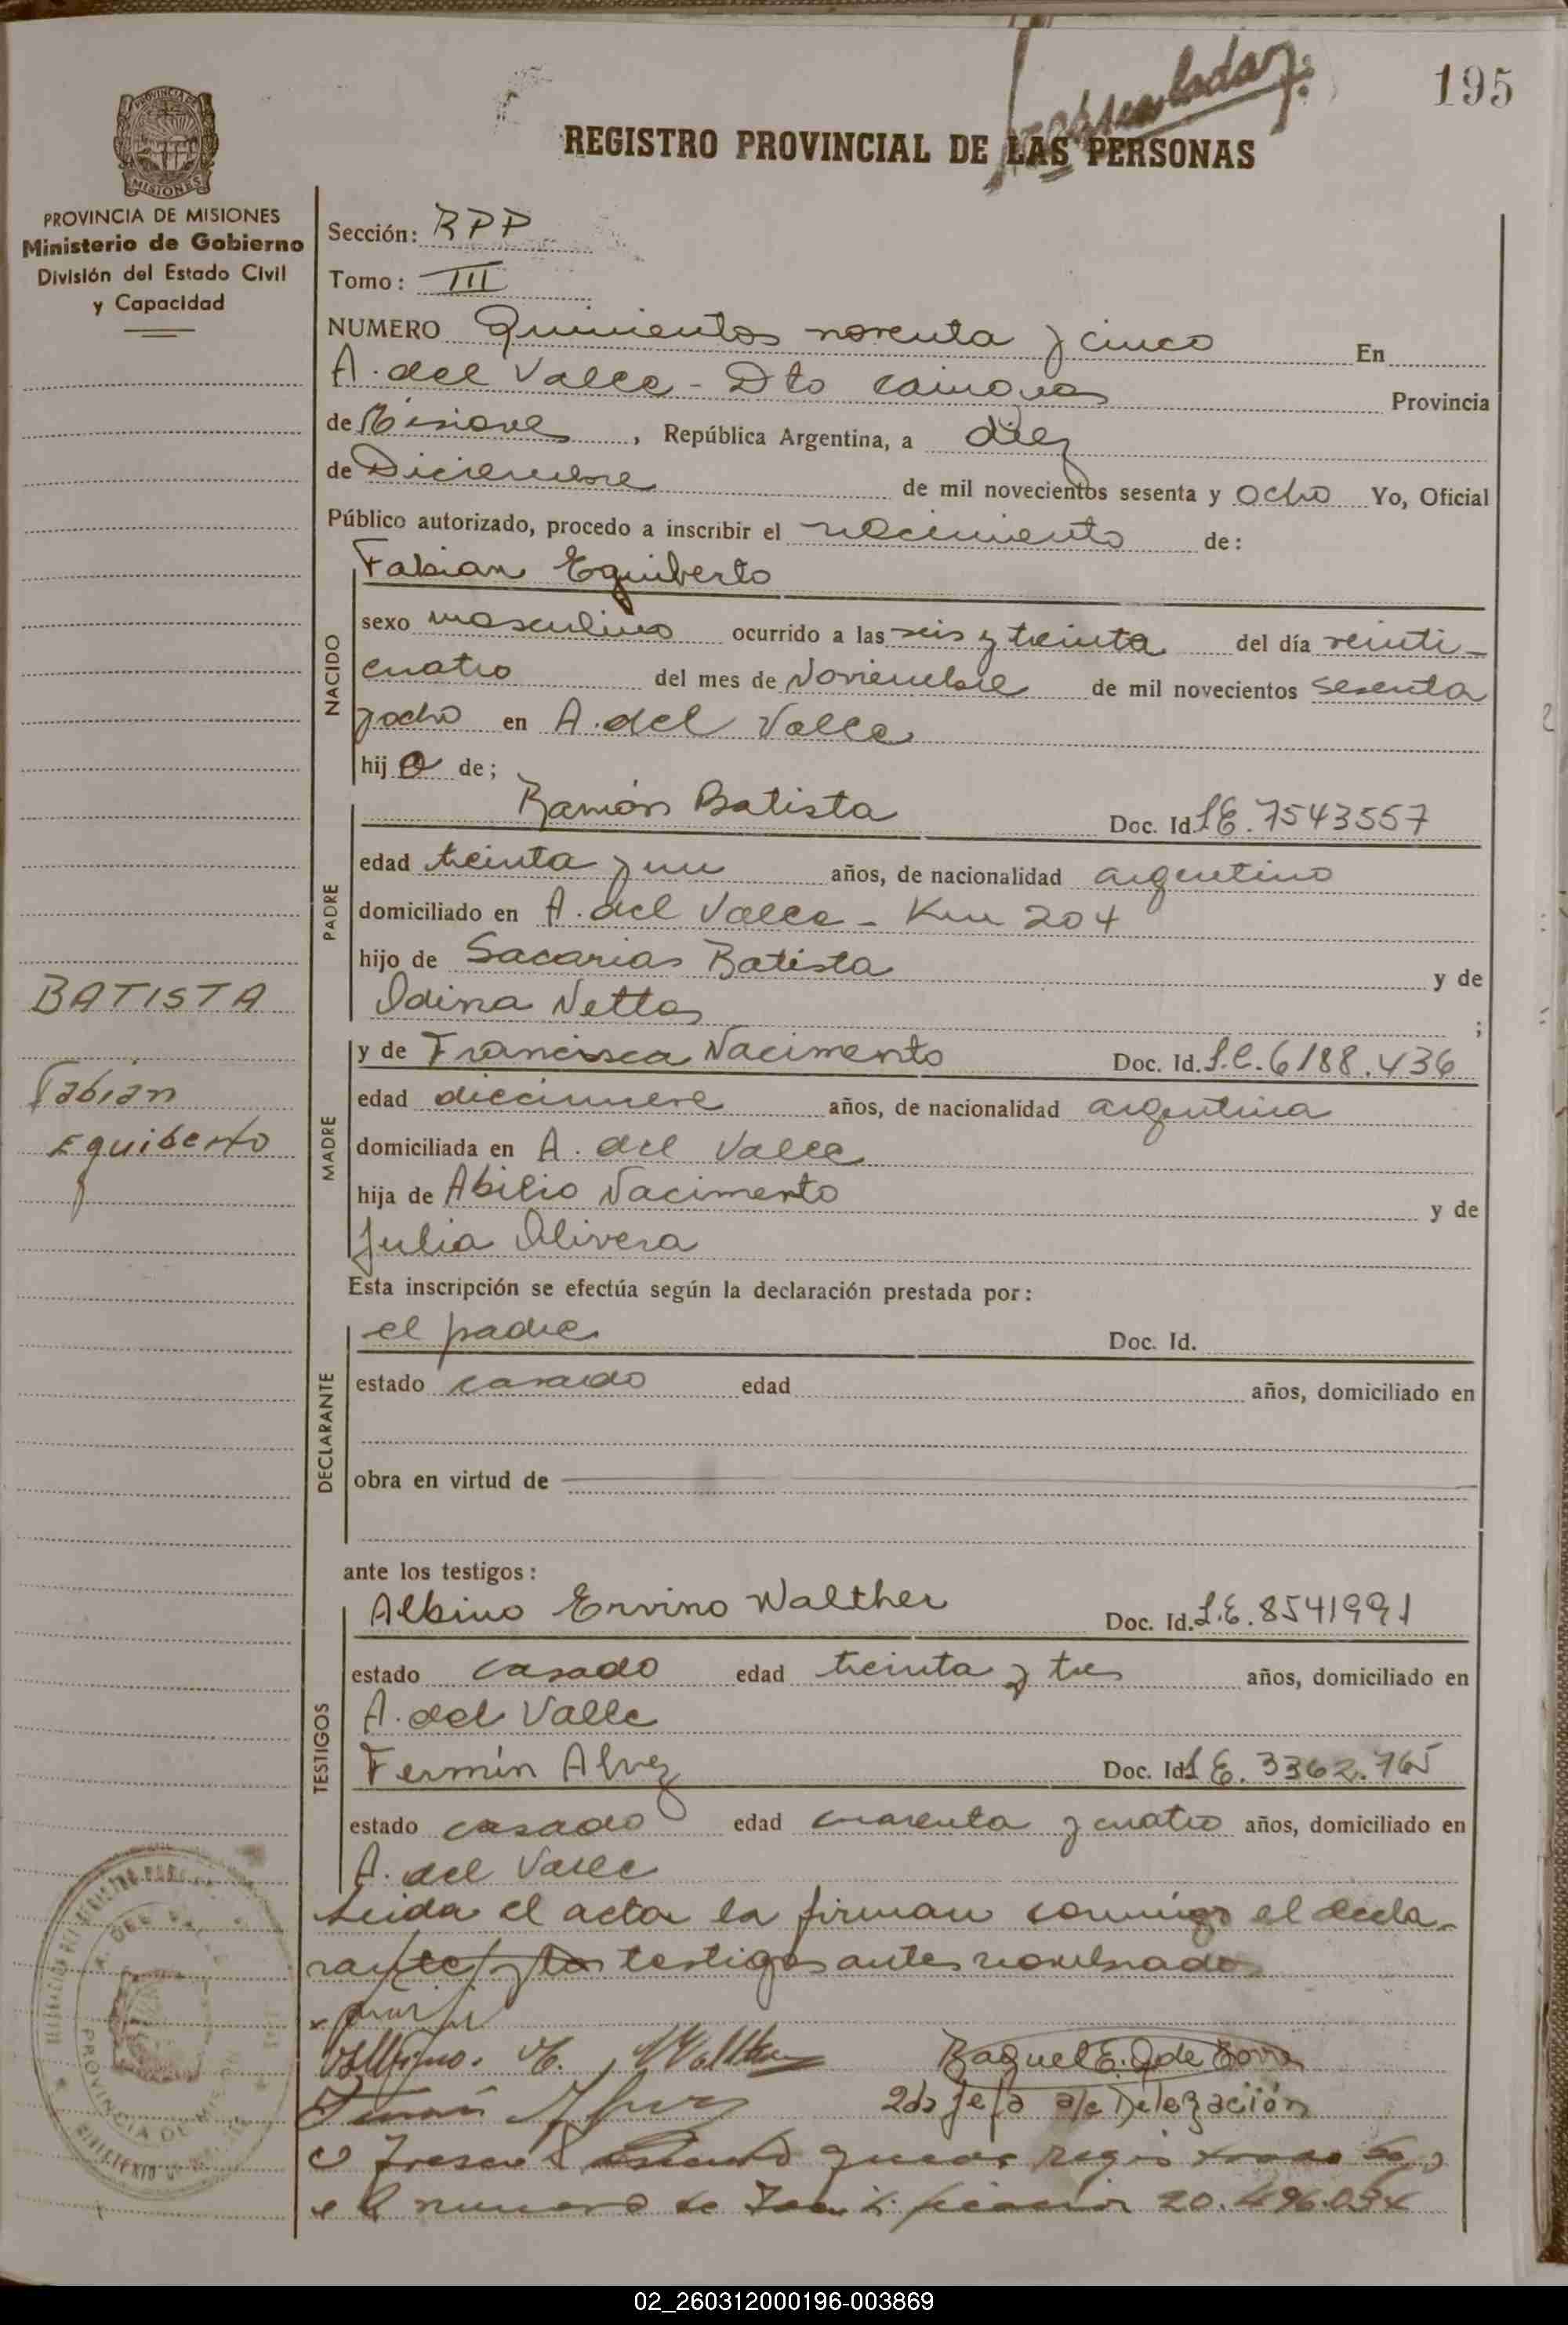 195
REGISTRO PROVINCIAL DE LAS PERSONAS
PROVINCIA DE MISIONES
Ministerio de Gobierno
División del Estado Civil
y Capacidad
Sección: RPP
Tomo: III
NUMERO Quinientos noventa y cinco En
A. del Valle - Dto Cainguas Provincia
de Misiones, República Argentina, a diez
de Diciembre de mil novecientos sesenta y ocho Yo, Oficial
Público autorizado, procedo a inscribir el nacimiento de:
NACIDO
Fabian Equiberto
sexo masculino ocurrido a las seis y treinta del día veinti-
cuatro del mes de Noviembre de mil novecientos sesenta
y ocho en A. del Valle
hijo de;
PADRE
Ramón Batista Doc. Id. L.E. 7543557
edad treinta y un años, de nacionalidad argentino
domiciliado en A. del Valle - Km 204
hijo de Sacarias Batista y de
Idina Nettos ;
BATISTA
Fabián
Equiberto
MADRE
y de Francisca Nacimento Doc. Id. L.C. 6188.436
edad diecinueve años, de nacionalidad argentina
domiciliada en A. del Valle
hija de Abilio Nacimento y de
Julia Olivera
Esta inscripción se efectúa según la declaración prestada por:
DECLARANTE
el padre Doc. Id.
estado casado edad años, domiciliado en
obra en virtud de
ante los testigos:
TESTIGOS
Albino Ervino Walther Doc. Id. L.E. 8541991
estado casado edad treinta y tres años, domiciliado en
A. del Valle
Fermín Alvez Doc. Id. L.E. 3362.765
estado casado edad cuarenta y cuatro años, domiciliado en
A. del Valle
Leida el acta la firman conmigo el decla-
rante y los testigos antes nombrados
Albino. E. Walther
Raquel E. G de
2da Jefa de Delegación
Fermín Alvez
el presente asiento queda registrado bajo
el numero de Identificación 20.496.094
PROVINCIA DE MISIONES
02_260312000196-003869